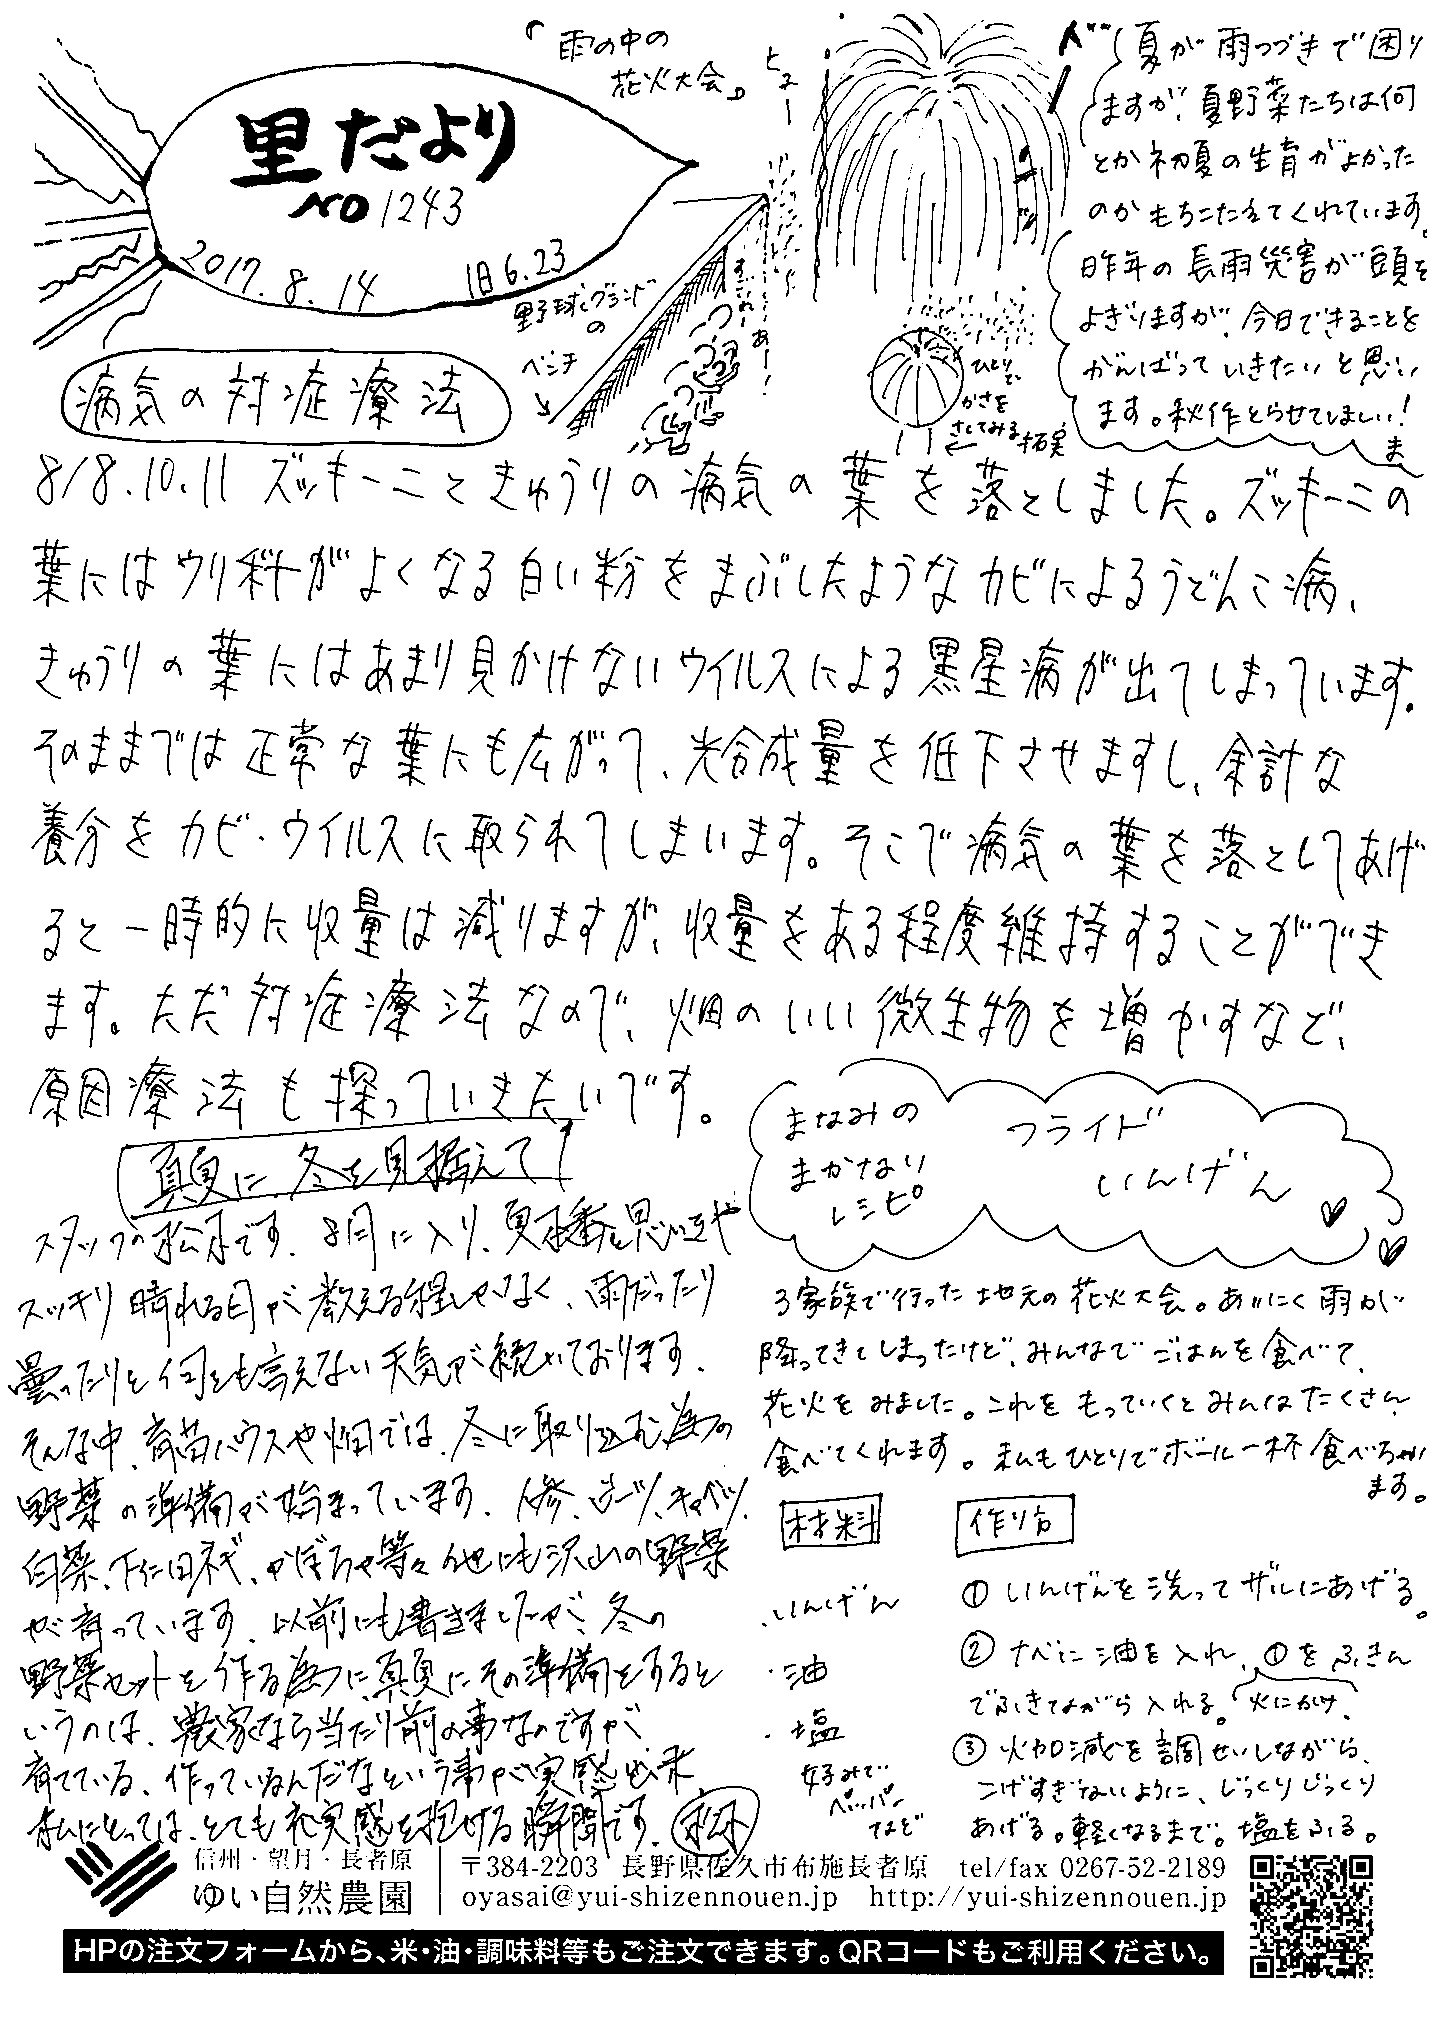 里だより
NO 1243
2017.8.14 旧6.23
「雨の中の
花火大会」
ヒュー
野球グランド
の
ベンチ
ひとりで
かさを
さしてみる
夏が雨つづきで困り
ますが、夏野菜たちは何
とか初夏の生育がよかった
のかもちこたえてくれています。
昨年の長雨災害が頭を
よぎりますが、今日できることを
がんばっていきたいと思い
ます。秋作とらせてほしい!
ま
病気の対症療法
8/8.10.11 ズッキーニときゅうりの病気の葉を落としました。ズッキーニの
葉にはウリ科がよくなる白い粉をまぶしたようなカビによるうどんこ病、
きゅうりの葉にはあまり見かけないウイルスによる黒星病が出てしまっています。
そのままでは正常な葉にも広がって、光合成量を低下させますし、余計な
養分をカビ・ウイルスに取られてしまいます。そこで病気の葉を落としてあげ
ると一時的に収量は減りますが、収量をある程度維持することができ
ます。ただ対症療法なので、畑のいい微生物を増やすなど、
原因療法も探っていきたいです。
真夏に、冬を見据えて
スタッフの松本です。8月に入り、夏本番と思いきや
スッキリ晴れる日が数える程しかなく、雨だったり
曇ったりと何とも言えない天気が続いております。
そんな中、育苗ハウスや畑では、冬に取り込む為の
野菜の準備が始まっています。人参、ビーツ、キャベツ、
白菜、下仁田ネギ、かぼちゃ等々他にも沢山の野菜
が育っています。以前にも書きましたが、冬の
野菜セットを作る為に、真夏にその準備をすると
いうのは、農家なら当たり前の事なのですが、
育てている、作っているんだなという事が実感出来
私にとっては、とても充実感を抱ける瞬間です。(松本)
まなみの
まかない
レシピ
フライド
いんげん
3家族で行った地元の花火大会。あいにく雨が
降ってきてしまったけど、みんなでごはんを食べて、
花火をみました。これをもっていくとみんなたくさん
食べてくれます。私もひとりでボール一杯食べちゃい
ます。
材料
・いんげん
・油
・塩
好みで
ペッパー
など
作り方
① いんげんを洗ってザルにあげる。
② ナベに油を入れ、①をふきん
でふきながら入れる。火にかけ、
③ 火加減を調せいしながら、
こげすぎないように、じっくりじっくり
あげる。軽くなるまで。塩をふる。
信州・望月・長者原
ゆい自然農園
〒384-2203 長野県佐久市布施長者原 tel/fax 0267-52-2189
oyasai@yui-shizennouen.jp http://yui-shizennouen.jp
HPの注文フォームから、米・油・調味料等もご注文できます。QRコードもご利用ください。